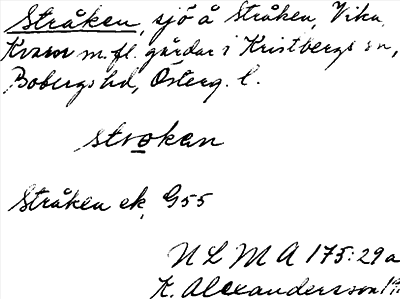 Stråken, sjö å Stråken, Vika,
Kvarn m.fl. gårdar i Kristbergs sn,
Bobergs hd, Österg. l.
strokan
Stråken ek. G55
NLMA 175:29a
K. Alexandersson